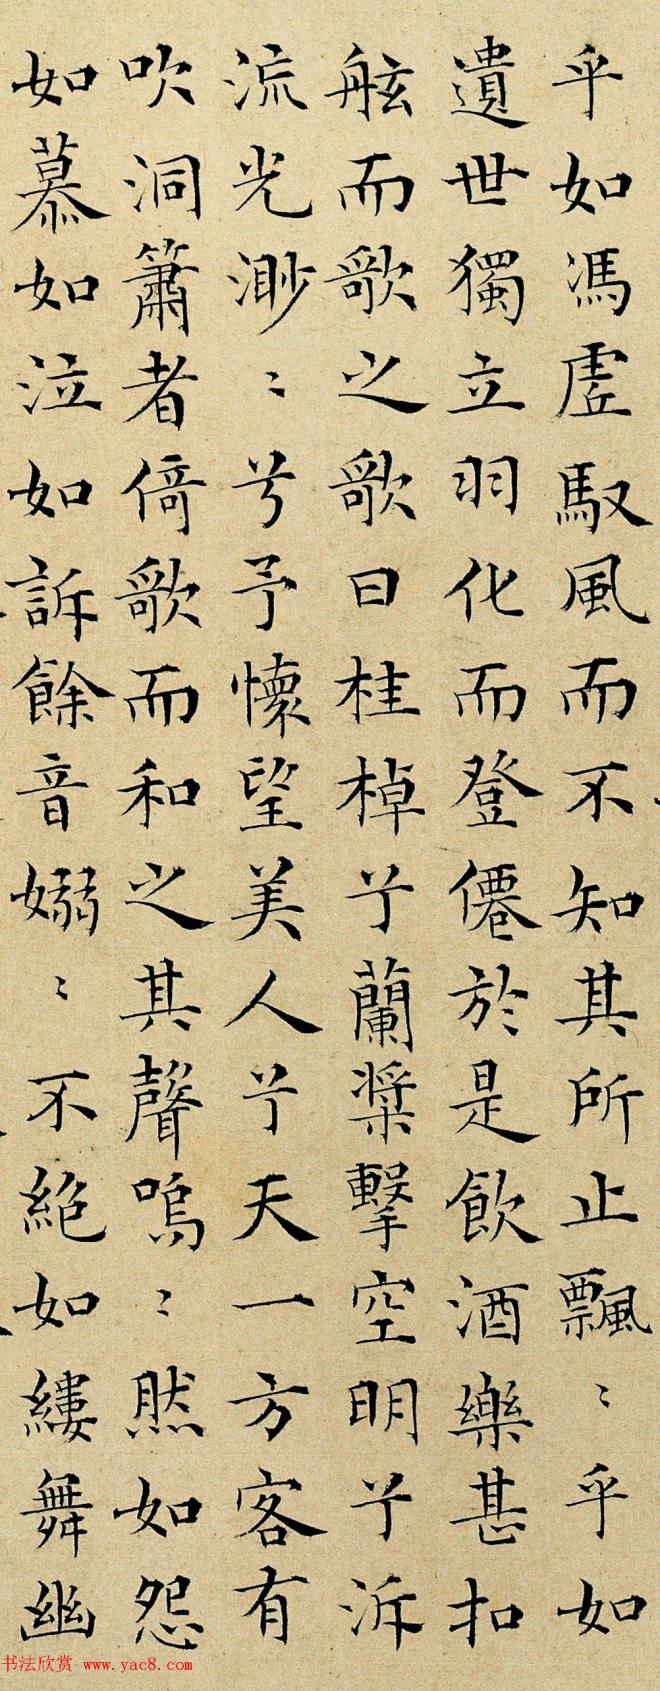 乎如馮虗馭風而不知其所止飄〻乎如
遺世獨立羽化而登僊於是飲酒樂甚扣
舷而歌之歌曰桂棹兮蘭槳擊空明兮泝
流光渺〻兮予懷望美人兮天一方客有
吹洞簫者倚歌而和之其聲嗚〻然如怨
如慕如泣如訴餘音嫋〻不絕如縷舞幽
书法欣赏 www.yac8.com